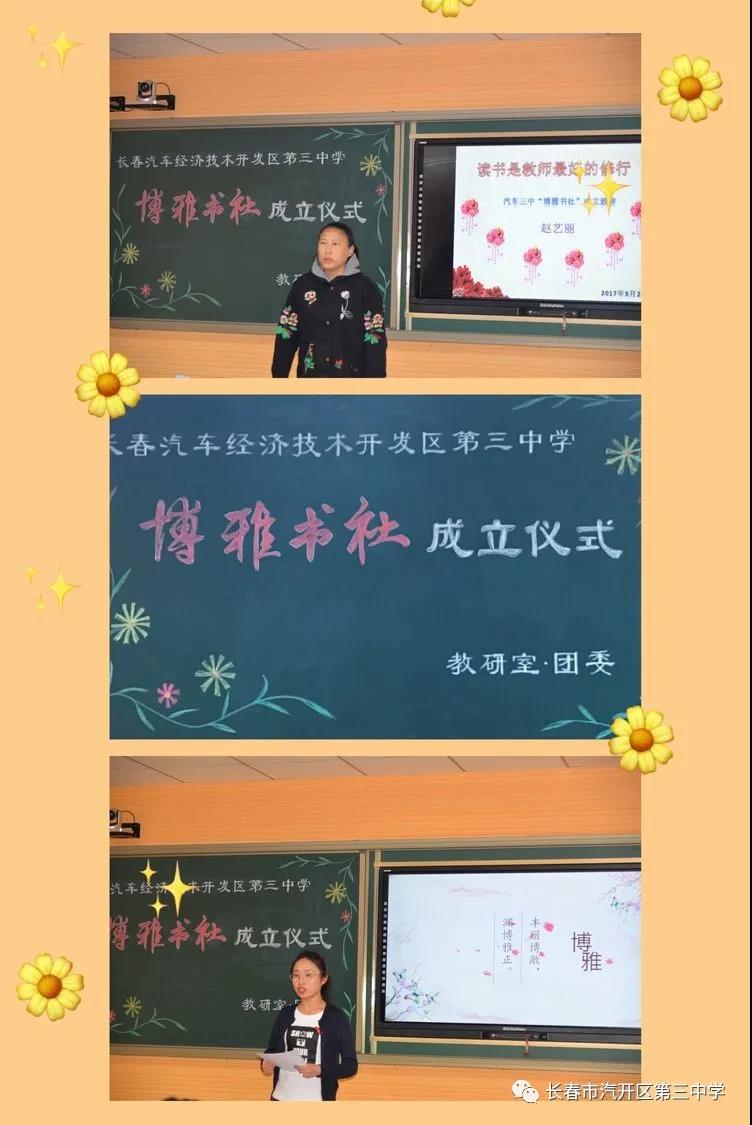 长春汽车经济技术开发区第三中学
博雅书社 成立仪式
教研
读书是教师最好的修行
汽车三中“博雅书社”成立致辞
赵艺丽
2017年9月2
长春汽车经济技术开发区第三中学
博雅书社 成立仪式
教研室·团委
汽车经济技术开发区第三中学
博雅书社 成立仪式
教研室·团
博雅
丰丽博敞，
渊博雅正。
SHOW
YOUR
长春市汽开区第三中学